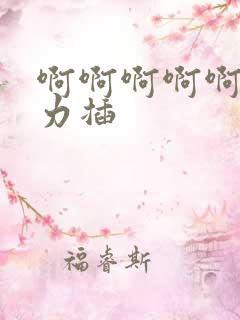 啊啊啊啊啊
力插
福睿斯